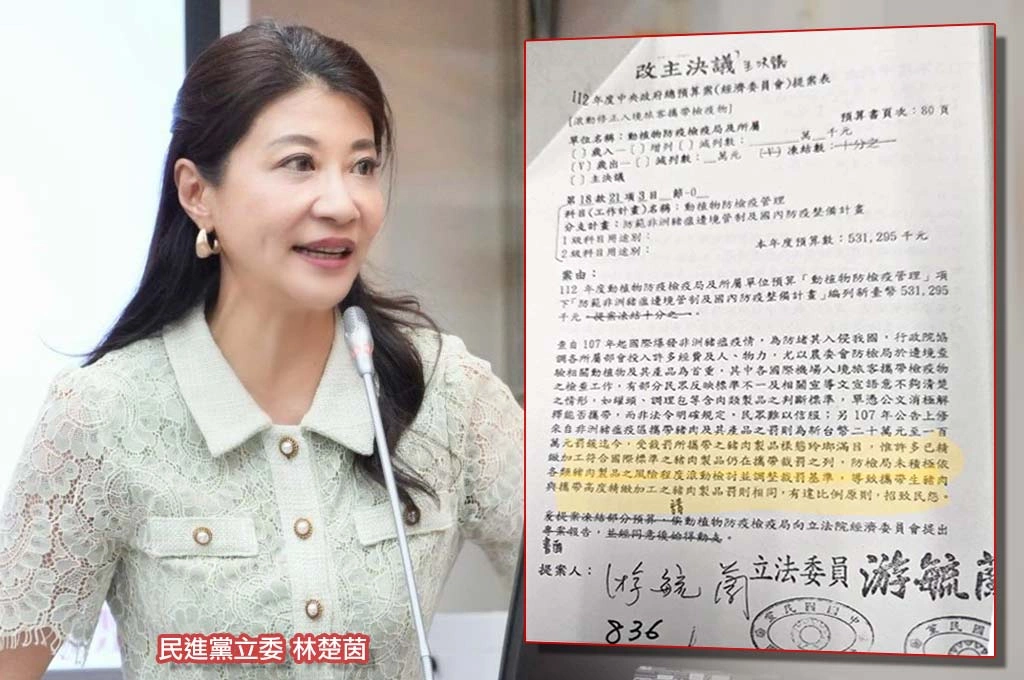 改主決議 主決議
112年度中央政府總預算案(經濟委員會)提案表
[滾動修正入境旅客攜帶檢疫物]
預算書頁次：80頁
單位名稱：動植物防疫檢疫局及所屬
( )歲入—( )增列( )減列數：____萬__千元
(V)歲出—( )減列數：__萬元 (V)凍結數：十分之一
( )主決議
第18款21項3目__節-0__
科目(工作計畫)名稱：動植物防檢疫管理
分支計畫：防範非洲豬瘟邊境管制及國內防疫整備計畫
1級科目用途別：
2級科目用途別：
本年度預算數：531,295千元
案由：
112年度動植物防疫檢疫局及所屬單位預算「動植物防檢疫管理」項
下「防範非洲豬瘟邊境管制及國內防疫整備計畫」編列新臺幣531,295
千元，提案凍結十分之一。
查自107年起國際爆發非洲豬瘟疫情，為防堵其入侵我國，行政院協
調各所屬部會投入許多經費及人、物力，尤以農委會防檢局於邊境查
驗相關動植物及其產品為首重，其中各國際機場入境旅客攜帶檢疫物
之檢查工作，有部分民眾反映標準不一及相關宣導文宣語意不夠清楚
之情形，如罐頭、調理包等含肉類製品之判斷標準，單憑公文消極解
釋能否攜帶，而非法令明確規定，民眾難以信服；另107年公告上修
來自非洲豬瘟疫區攜帶豬肉及其產品之罰則為新台幣二十萬元至一百
萬元罰鍰迄今，受裁罰所攜帶之豬肉製品樣態玲瑯滿目，惟許多已精
緻加工符合國際標準之豬肉製品仍在攜帶裁罰之列，防檢局未積極依
各類豬肉製品之風險程度滾動檢討並調整裁罰基準，導致攜帶生豬肉
與攜帶高度精緻加工之豬肉製品罰則相同，有違比例原則，招致民怨。
請
爰提案凍結部分預算，俟動植物防疫檢疫局向立法院經濟委員會提出
專案報告，並經同意後始得動支。
書面
提案人：
游毓蘭
立法委員 游毓蘭
836
民進黨立委 林楚茵